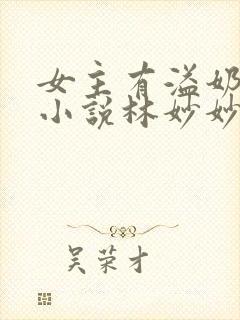 女主有溢奶
小说林妙妙
吴荣才